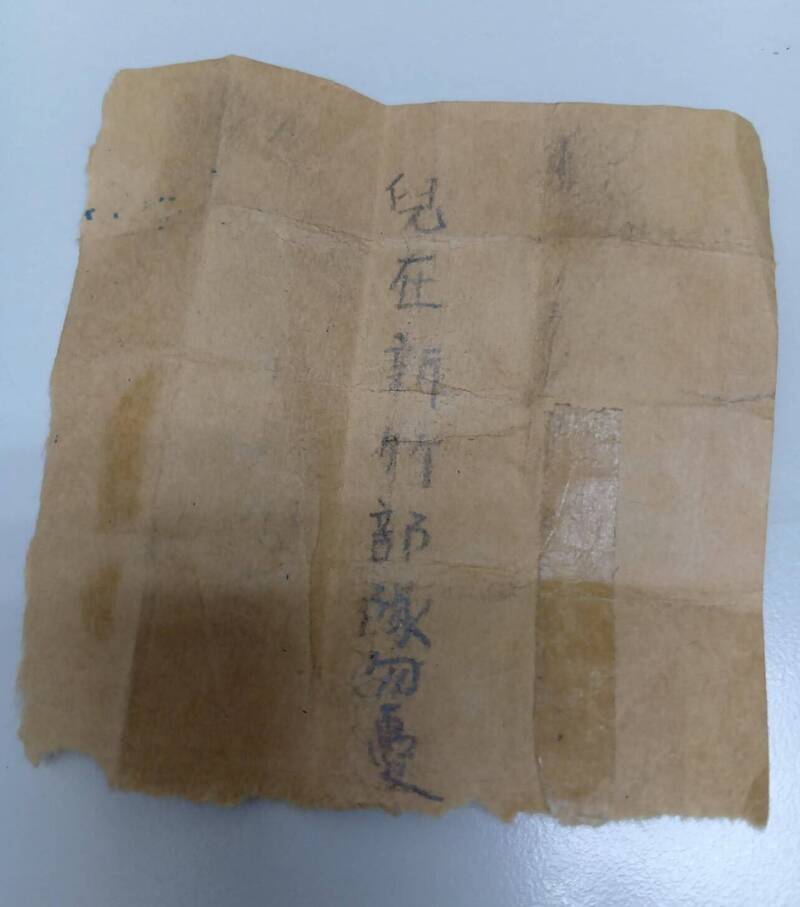 兒在新竹部隊勿憂